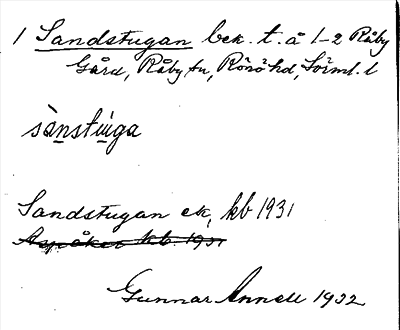 1 Sandstugan bek. t. å 1-2 Råby
Gård, Råby sn, Rönö hd, Sörml. l
sànstúga
Sandstugan ek, kb 1931
Aspåker kb. 1931
Gunnar Annell 1932